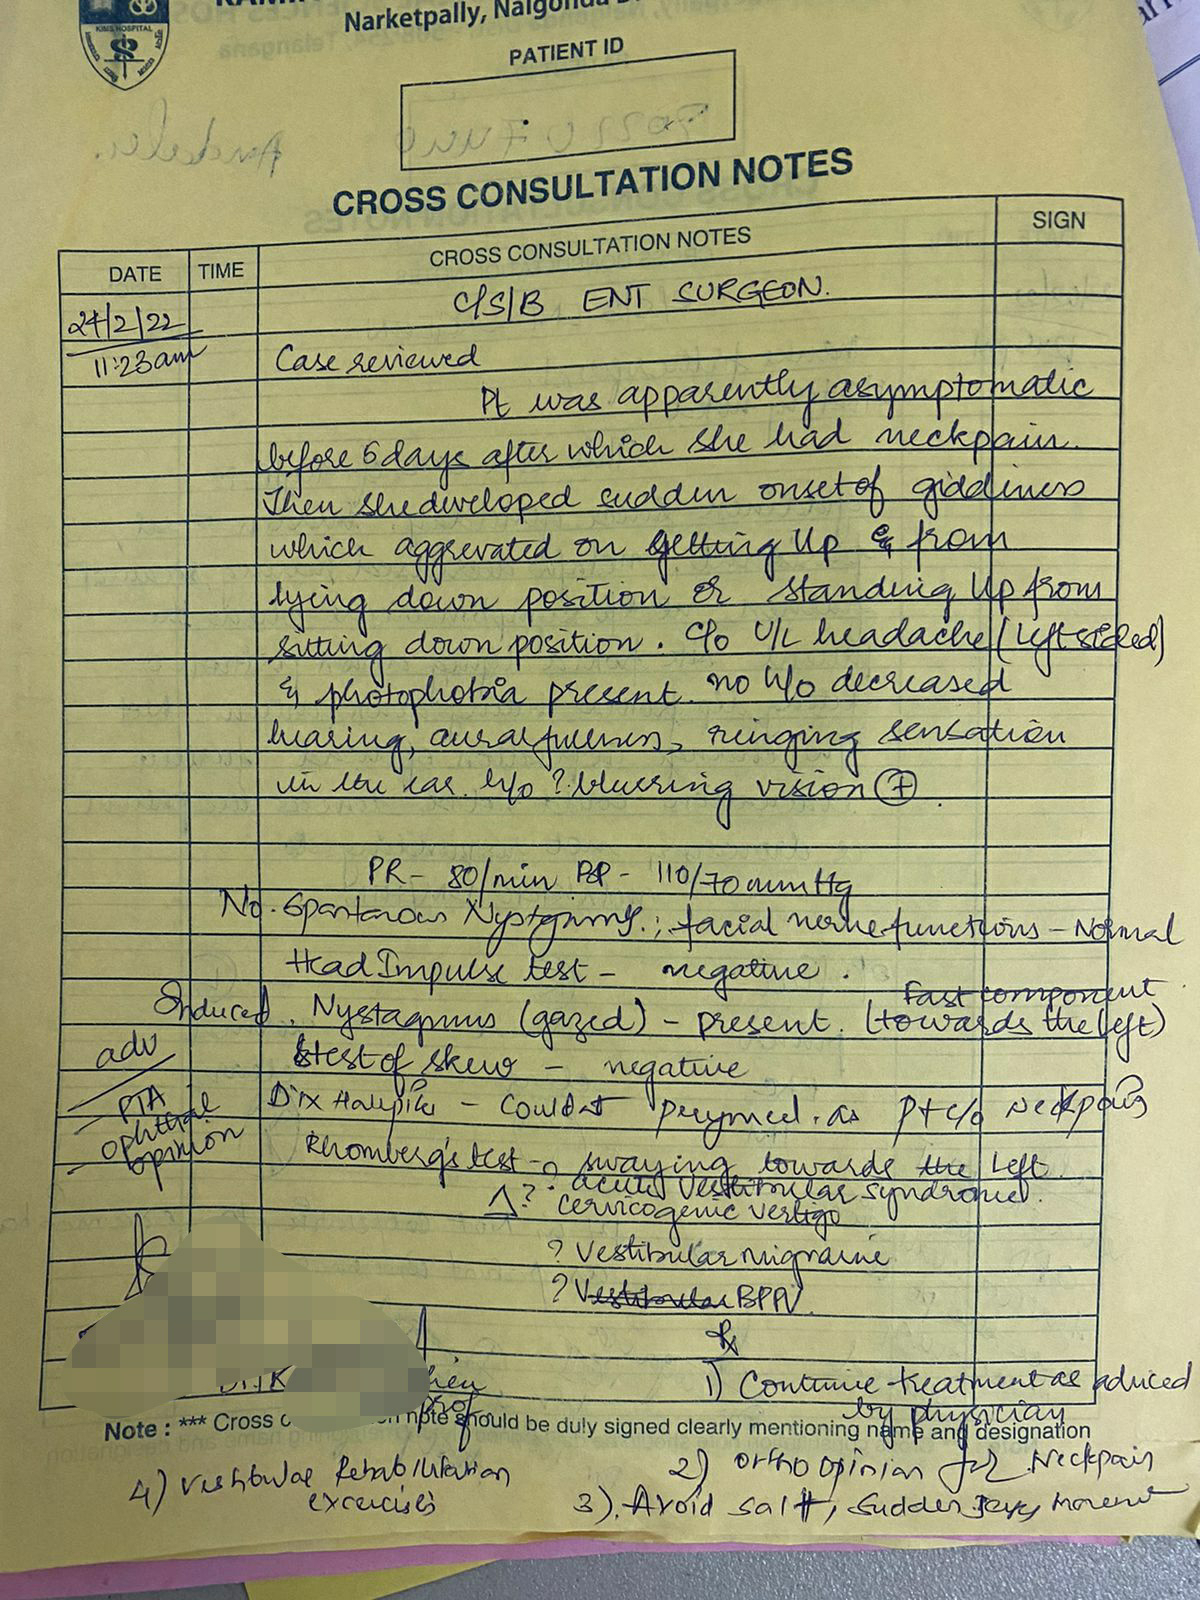 Narketpally, Nalgonda
PATIENT ID
CROSS CONSULTATION NOTES
DATE TIME CROSS CONSULTATION NOTES SIGN
24/2/22 C/S/B ENT SURGEON.
11:23am Case reviewed
Pt was apparently asymptomatic
before 6 days after which she had neckpain.
Then she developed sudden onset of giddiness
which aggrevated on getting Up & from
lying down position or standing Up from
sitting down position. C/o U/L headache (left sided)
& photophobia present. no h/o decreased
hearing, aural fullness, ringing sensation
in the ear. h/o ? blurring vision (+)
PR - 80/min BP - 110/70 mmHg
No. Spontanous Nystagmus.; facial nerve functions - Normal
Head Impulse test - negative.
Fast component
Induced, Nystagmus (gazed) - present. (towards the left)
adv test of skew - negative
PTA Dix Halpike - Couldnt performed. as pt c/o Neckpain
Ophthal
opinion Rhomberg's test - swaying towards the Left.
Δ ? acute vestibular syndrome.
cervicogenic vertigo
? Vestibular migraine
? BPPV.
Rx
1) Continue treatment as adviced
by physician
Note : *** Cross note should be duly signed clearly mentioning name and designation
2) Ortho opinion for Neckpain
4) Vestibular Rehabilitation
excercises
3). Avoid salt, Sudden